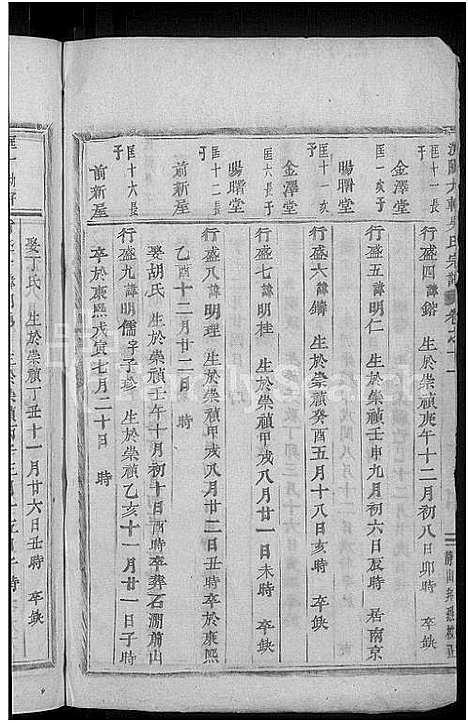 吳氏宗譜 卷之十一
匡一長子
金澤堂
行盛四 諱鎔 生於崇禎庚午十二月初八日卯時 卒缺
匡一次子
金澤堂
行盛五 諱明仁 生於崇禎壬申九月初六日辰時 居南京
匡十一長子
暘曙堂
行盛六 諱鑄 生於崇禎癸酉五月十八日亥時 卒缺
匡六長子
金澤堂
行盛七 諱明桂 生於崇禎甲戌八月廿一日未時 卒缺
匡十二長子
暘曙堂
行盛八 諱明理 生於崇禎甲戌八月廿二日 卒於康熙
乙酉十二月廿二日 時
娶胡氏 生於崇禎壬午十月初十日酉時卒葬石澗蕭山
匡十六長子
前新屋
行盛九 諱明儒 字子珍 生於崇禎乙亥十一月廿一日子時
卒於康熙戊寅七月二十日 時
前新屋
娶丁氏 生於崇禎丁丑十一月廿六日丑時 卒缺